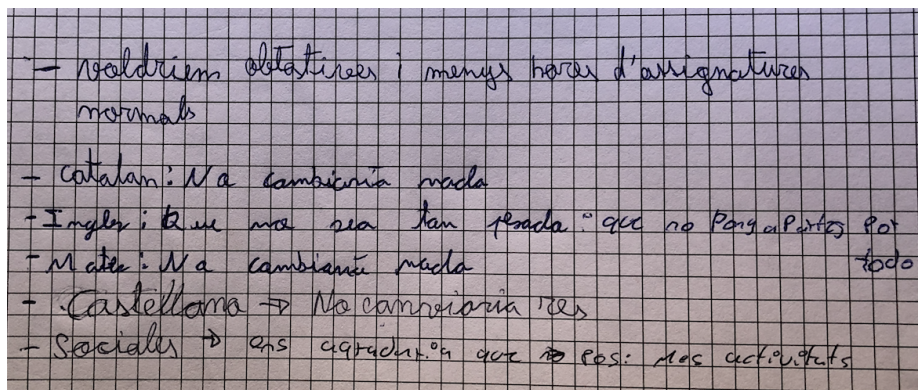 - voldriem obtatives i menys hores d'assignatures
normals
- Catalan: No cambiaria nada
- Ingles: Que no sea tan pesada: que no Ponga Partes Por
todo
- Mates: No cambiaria nada
- Castellano → No canviaria res
- Sociales → ens agradaria que posi mes activitats